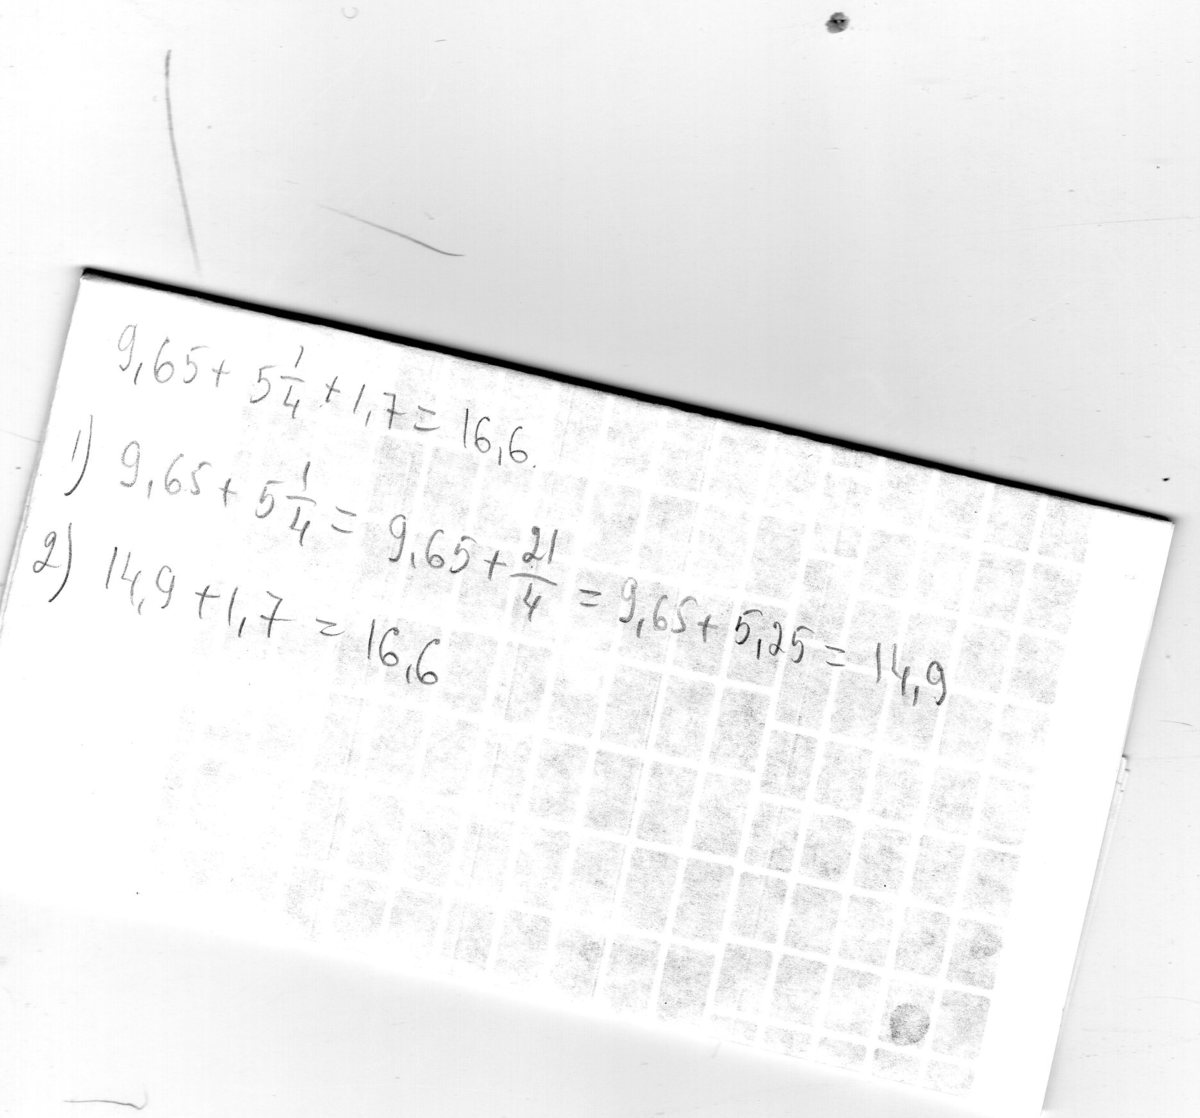 9,65 + 5 1/4 + 1,7 = 16,6.
1) 9,65 + 5 1/4 = 9,65 + 21/4 = 9,65 + 5,25 = 14,9
2) 14,9 + 1,7 = 16,6